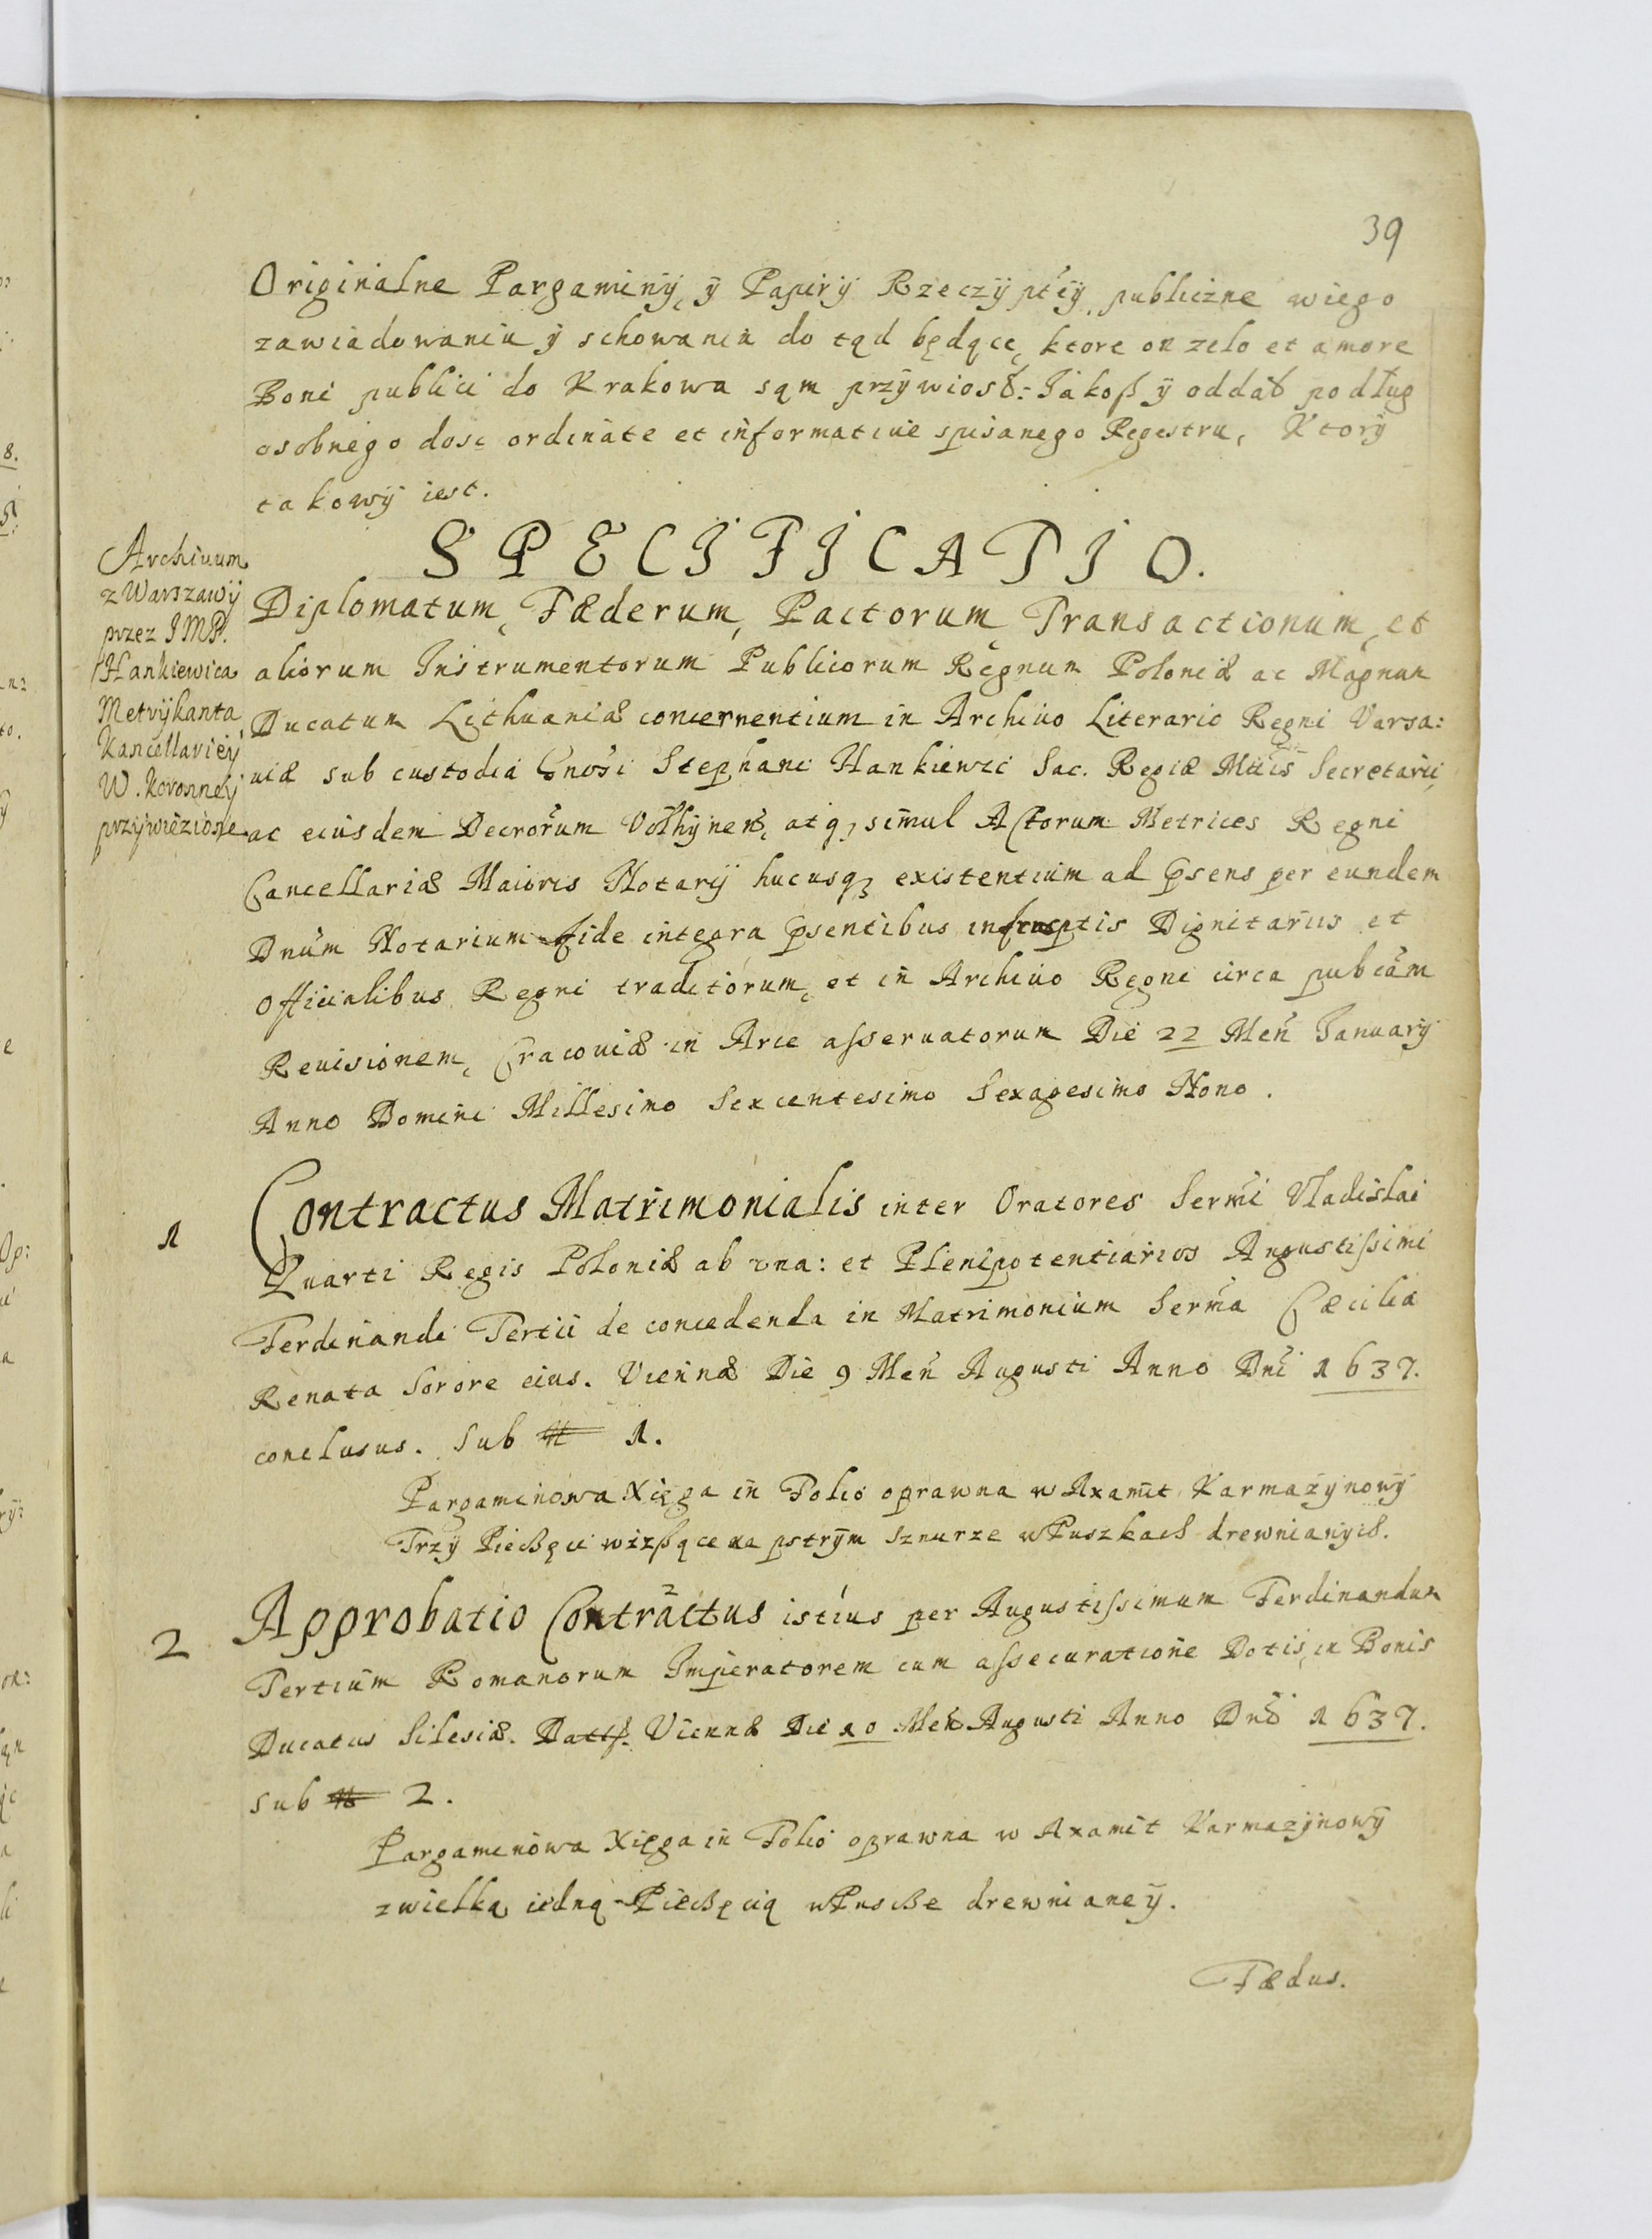 39
Originalne Pargaminÿ, ÿ Papirÿ Rzeczÿ ptéÿ, publiczne wiego
zawiadowaniu ÿ schowaniu do tąd będące, ktore on zelo et amore
Boni publici do Krakowa sąm przÿwiosł: Jakoß ÿ oddał podług
osobnego dosc ordinate et informatiue spisanego Regestru, Ktorÿ
takowÿ iest.
SPECIFICATIO.
Archiuum
z Warszawÿ
przez JMP.
Hankiewica
Metrÿkanta
Kancellarieÿ
W. Koronneÿ
przÿwiezione
Diplomatum, Fæderum, Pactorum, Transactionum, et
aliorum Instrumentorum Publicorum Regnum Poloniæ ac Magnum
Ducatum Lithuaniæ concernentium in Archiuo Literario Regni Varsa:
uiæ sub custodia Gnosi Stephani Hankiewic Sac. Regiæ Mttis Secretarii,
ac eiusdem Decrorum Volhÿnen, atq3 simul Actorum Metrices Regni
Cancellariæ Maioris Notarÿ hucusq3 existentium ad psens per eundem
Dnum Notarium fide integra psentibus infrasptis Dignitariis et
Officialibus Regni traditorum, et in Archiuo Regni circa pubcam
Reuisionem, Cracouiæ in Arce asseruatorum Die 22 Men Januarÿ
Anno Domini Millesimo Sexcentesimo Sexagesimo Nono.
1 Contractus Matrimonialis inter Oratores Sermi Vladislai
Quarti Regis Poloniæ ab vna: et Plenipotentiarios Augustissimi
Ferdinandi Tertii de concedenda in Matrimonium Serma Cæcilia
Renata Sorore eius. Viennæ Die 9 Men Augusti Anno Dni 1637.
conclusus. Sub N 1.
Pargaminowa Xięga in Folio oprawna w Axamit Karmazÿnowÿ
Trzÿ Piecßęci wißące na pstrÿm sznurze w Puszkach drewnianÿch.
2 Approbatio Contractus istius per Augustissimum Ferdinandum
Tertium Romanorum Imperatorem cum assecuratione Dotis, in Bonis
Ducatus Silesiæ. Datts. Viennæ Die 10 Men Augusti Anno Dni 1637.
sub N 2.
Pargaminowa Xięga in Folio oprawna w Axamit Karmazÿnowÿ
zwielką iedną Piecßęcią w Puscße drewnianeÿ.
Fædus.